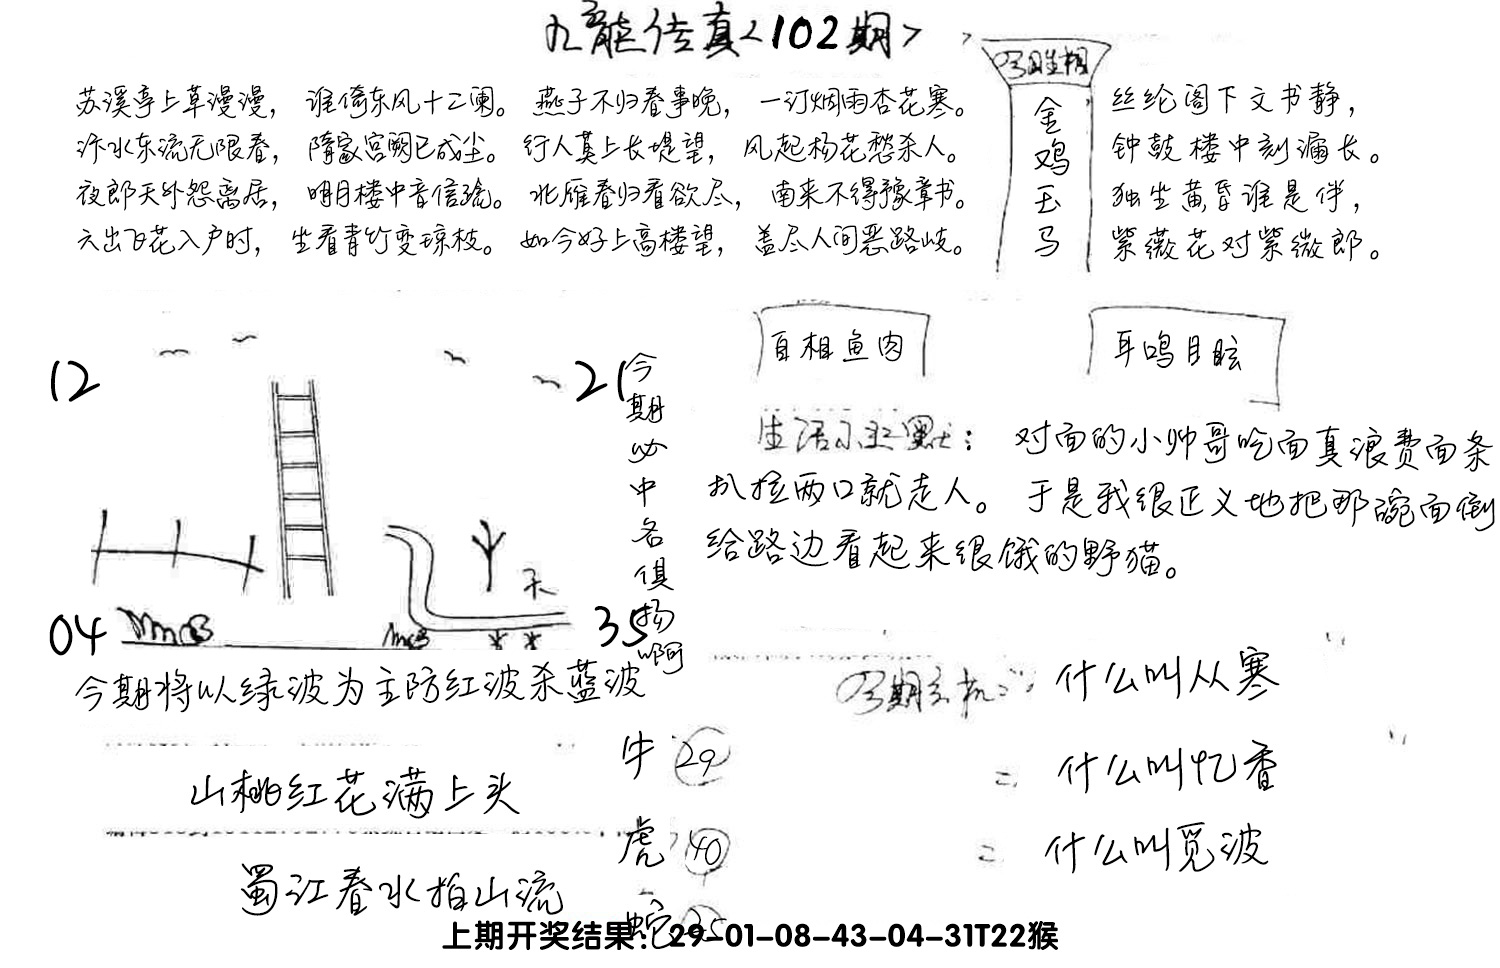 九龙传真<102期>
今日生相
金鸡玉马
苏溪亭上草漫漫，谁倚东风十二阑。燕子不归春事晚，一汀烟雨杏花寒。
汴水东流无限春，隋家宫阙已成尘。行人莫上长堤望，风起杨花愁杀人。
夜郎天外怨离居，明月楼中音信疏。北雁春归看欲尽，南来不得豫章书。
六出飞花入户时，坐看青竹变琼枝。如今好上高楼望，盖尽人间恶路岐。
丝纶阁下文书静，
钟鼓楼中刻漏长。
独坐黄昏谁是伴，
紫薇花对紫微郎。
12
21
04
35
今期必中各俱扬啊
自相鱼肉
耳鸣目眩
对面的小帅哥吃面真浪费面条
扒拉两口就走人。于是我很正义地把那碗面倒
给路边看起来很饿的野猫。
今期将以绿波为主防红波杀蓝波
山桃红花满上头
蜀江春水拍山流
牛 29
虎 40
蛇 25
今期玄机：什么叫从寒
= 什么叫忆香
= 什么叫觅波
上期开奖结果：29-01-08-43-04-31T22猴